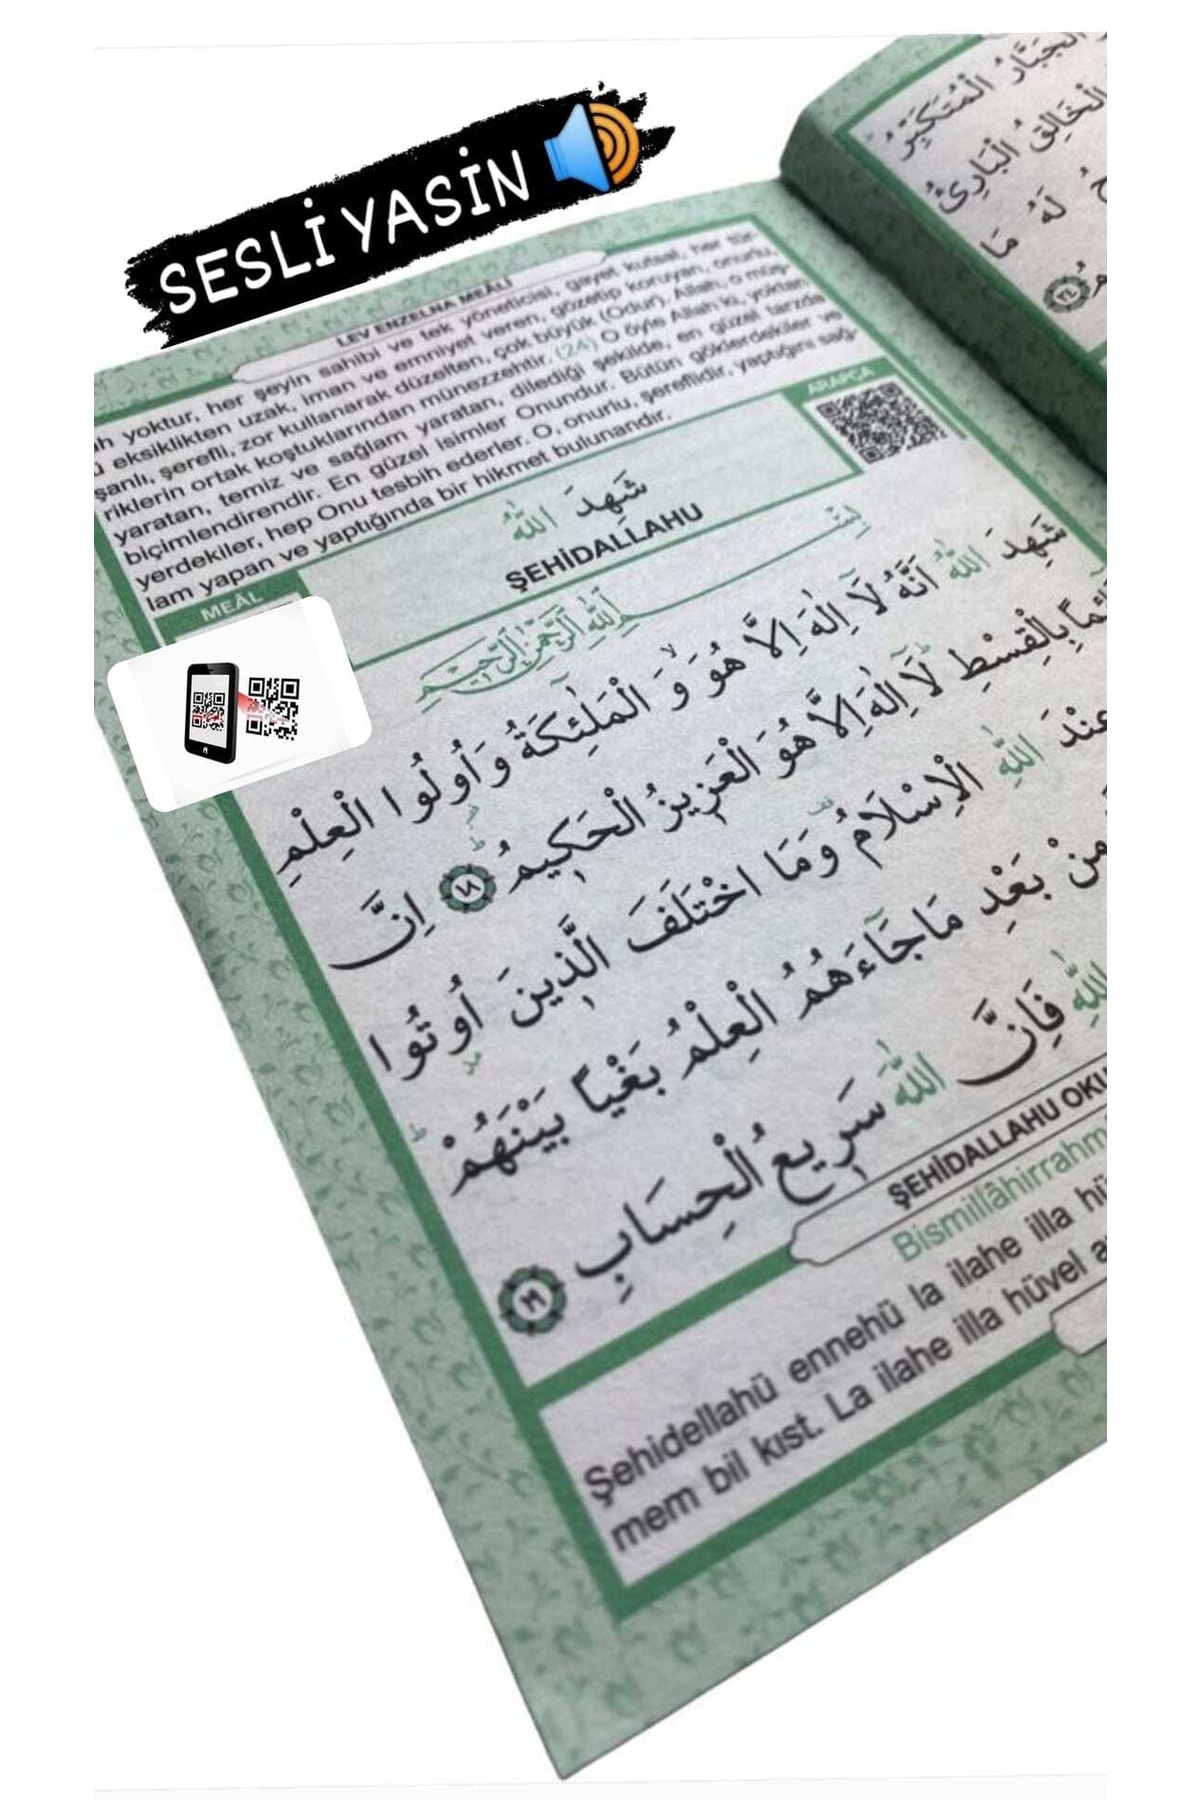 SESLİ YASİN
LEV ENZELNA MEÂLİ
yoktur, her şeyin sahibi ve tek yöneticisi, gayet kutsal, her tür-
eksiklikten uzak, iman ve emniyet veren, gözetip koruyan, onurlu,
şanlı, şerefli, zor kullanarak düzelten, çok büyük (Odur). Allah, o müş-
riklerin ortak koştuklarından münezzehtir. (24) O öyle Allah ki, yoktan
yaratan, temiz ve sağlam yaratan, dilediği şekilde, en güzel tarzda
biçimlendirendir. En güzel isimler Onundur. Bütün göklerdekiler ve
yerdekiler, hep Onu tesbih ederler. O, onurlu, şereflidir, yaptığını sağ-
lam yapan ve yaptığında bir hikmet bulunandır.
MEÂL
ARAPÇA
شَهِدَ اللّٰهُ
ŞEHİDALLAHU
بِسْمِ اللّٰهِ الرَّحْمٰنِ الرَّحِيمِ
شَهِدَ اللّٰهُ اَنَّهُ لَٓا اِلٰهَ اِلَّا هُوَۙ وَ الْمَلٰٓئِكَةُ وَاُولُوا الْعِلْمِ
بِالْقِسْطِ لَٓا اِلٰهَ اِلَّا هُوَ الْعَزِيزُ الْحَكِيمُ ﴿١٨﴾ اِنَّ
عِنْدَ اللّٰهِ الْاِسْلَامُ وَمَا اخْتَلَفَ الَّذِينَ اُوتُوا
مِنْ بَعْدِ مَا جَٓاءَهُمُ الْعِلْمُ بَغْيًا بَيْنَهُمْ
اللّٰهِ فَاِنَّ اللّٰهَ سَرِيعُ الْحِسَابِ ﴿١٩﴾
ŞEHİDALLAHU
Şehidellahü ennehü la ilahe illa
mem bil kıst. La ilahe illa hüvel
الْجَبَّارُ الْمُتَكَبِّرُ
الْخَالِقُ الْبَارِئُ
لَهُ مَا
﴿٢٤﴾